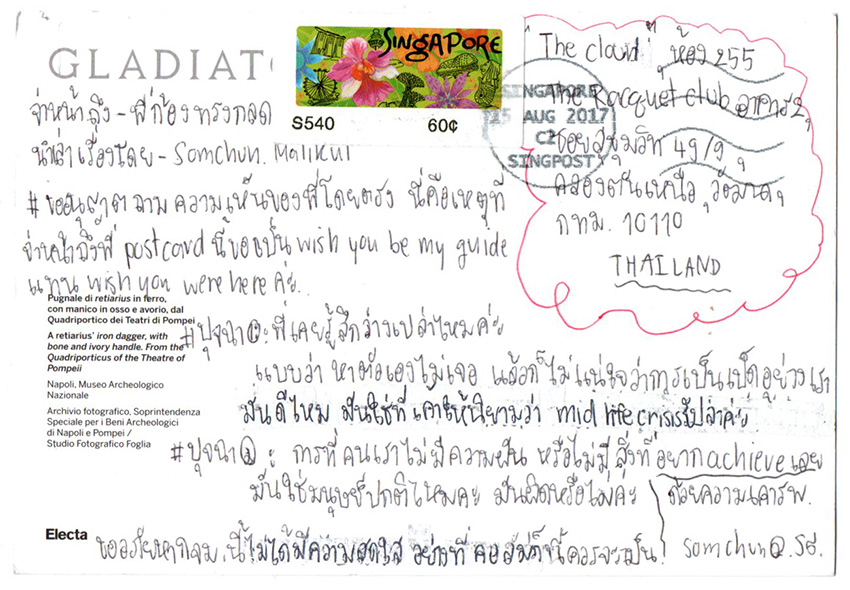 GLADIAT
จ่าหน้าถึง - พี่ก้องทรงกลด
นำเล่าเรื่องโดย - Somchun. Malikul
#ขออนุญาตถามความเห็นของพี่โดยตรง นี่คือเหตุที่
จ่าหน้าถึงพี่ postcard นี้ขอเป็น wish you be my guide
แทน wish you were here ค่ะ..
SINGAPORE
S540 60¢
SINGAPORE
AUG 2017
C2
SINGPOST
"The cloud" ห้อง 255
The Racquet club อาคาร 2
ซอยสุขุมวิท 49/9
คลองตันเหนือ วัฒนา
กทม. 10110
THAILAND
Pugnale di retiarius in ferro,
con manico in osso e avorio, dal
Quadriportico dei Teatri di Pompei
A retiarius' iron dagger, with
bone and ivory handle. From the
Quadriporticus of the Theatre of
Pompeii
Napoli, Museo Archeologico
Nazionale
Archivio fotografico, Soprintendenza
Speciale per i Beni Archeologici
di Napoli e Pompei /
Studio Fotografico Foglia
Electa
#ปุจฉา①: พี่เคยรู้สึกว่างเปล่าไหมค่ะ
แบบว่า หาตัวเองไม่เจอ แล้วก็ไม่แน่ใจว่าการเป็นเป็ดอย่างเรา
มันดีไหม มันใช่ที่เค้าให้นิยามว่า mid life crisis รึเปล่าค่ะ
#ปุจฉา②: การที่คนเราไม่มีความฝัน หรือไม่มีสิ่งที่อยาก achieve เลย
มันใช่มนุษย์ปกติไหมคะ มันผิดหรือไม่คะ
ด้วยความเคารพ.
ขออภัยหากจม.นี้ไม่ได้มีความสดใส อย่างที่คอลัมน์นี้ควรจะเป็น
Somchun